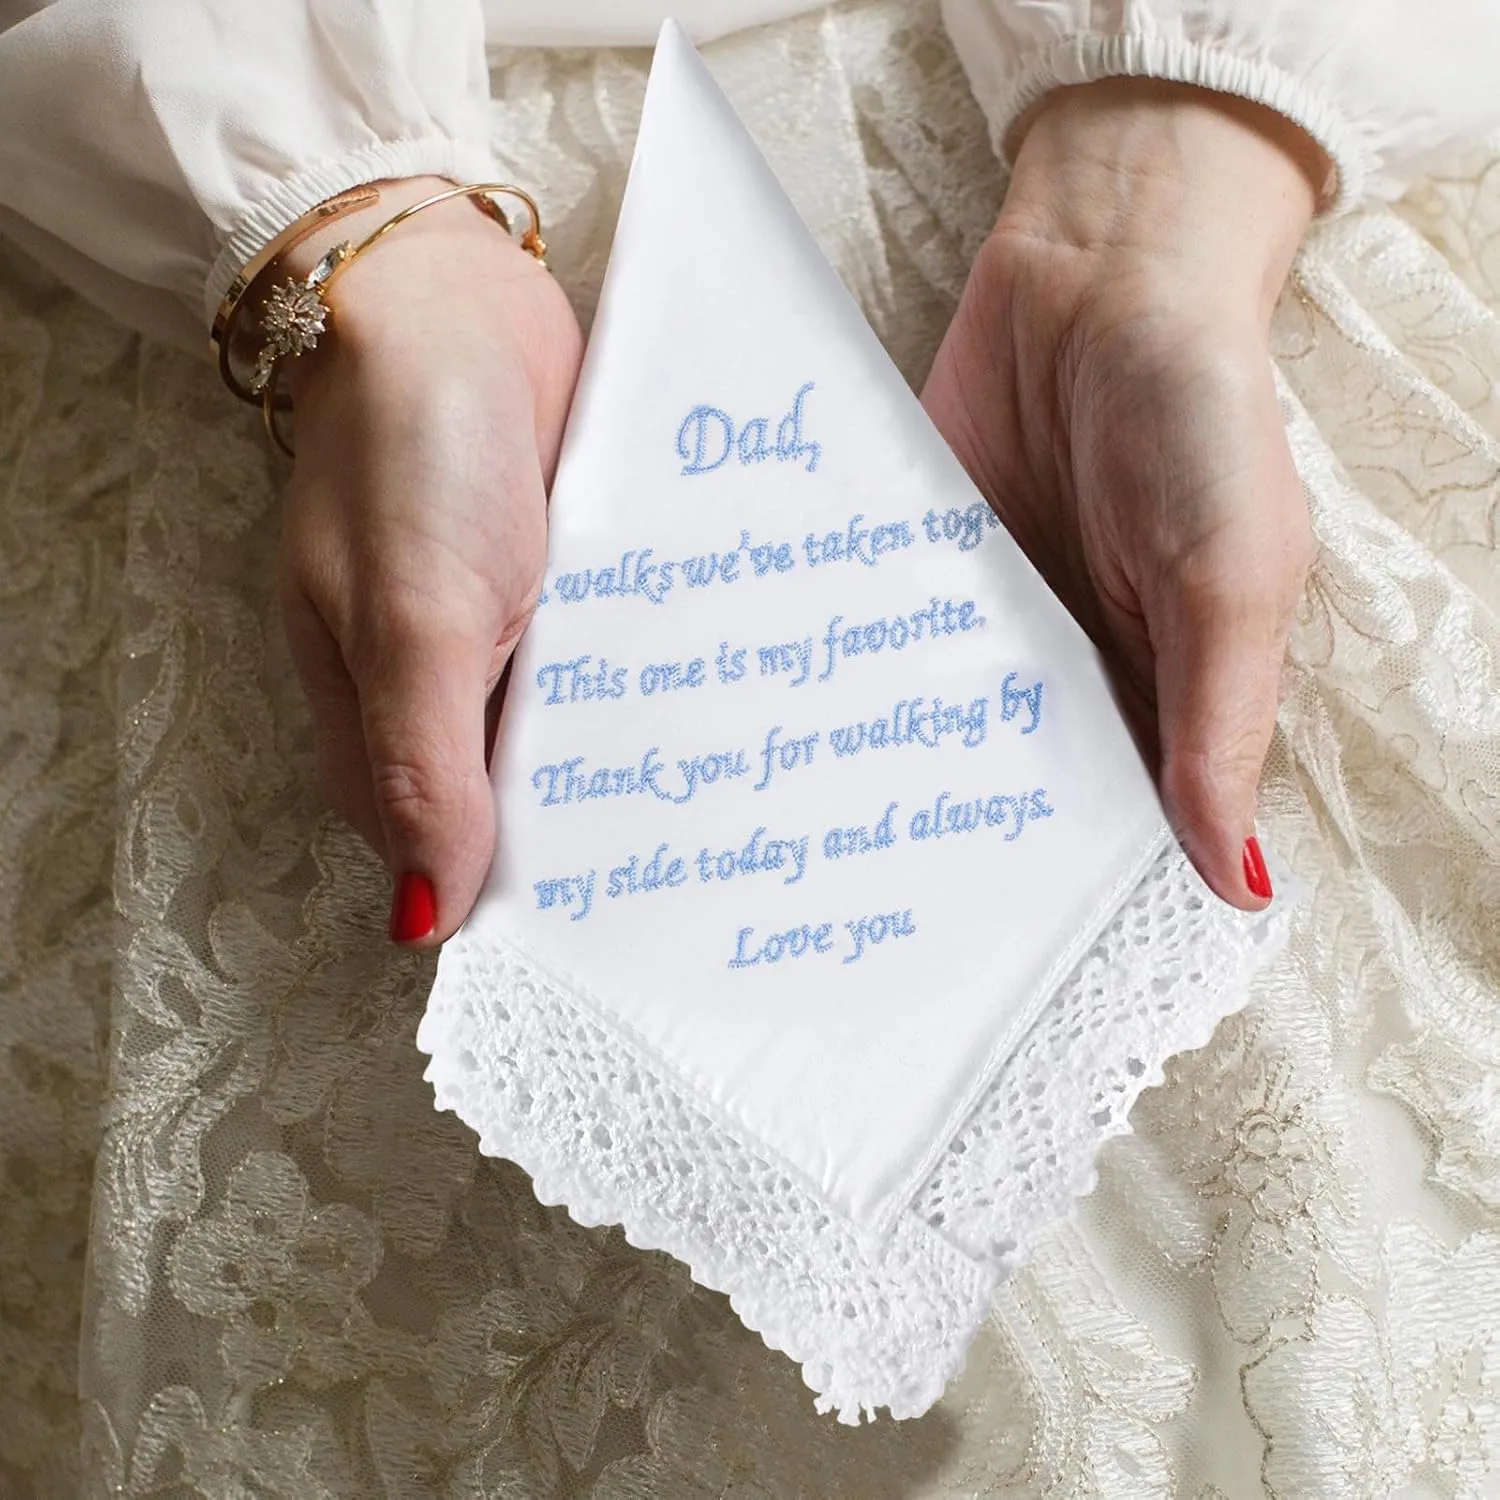 Dad,
walks we've taken toge
This one is my favorite.
Thank you for walking by
my side today and always.
Love you